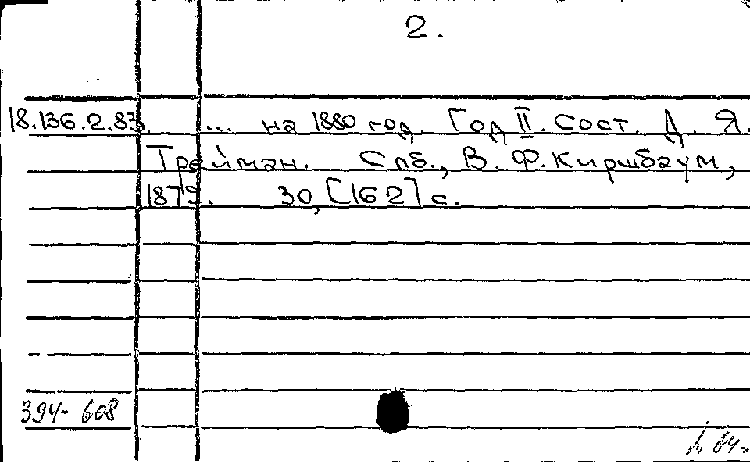 2.
18.136.2.83 ... на 1880 год. Год II. Сост. Д. Я.
Трейман. Спб., В. Ф. Киршбаум,
1879. 30, [162] с.
394-608